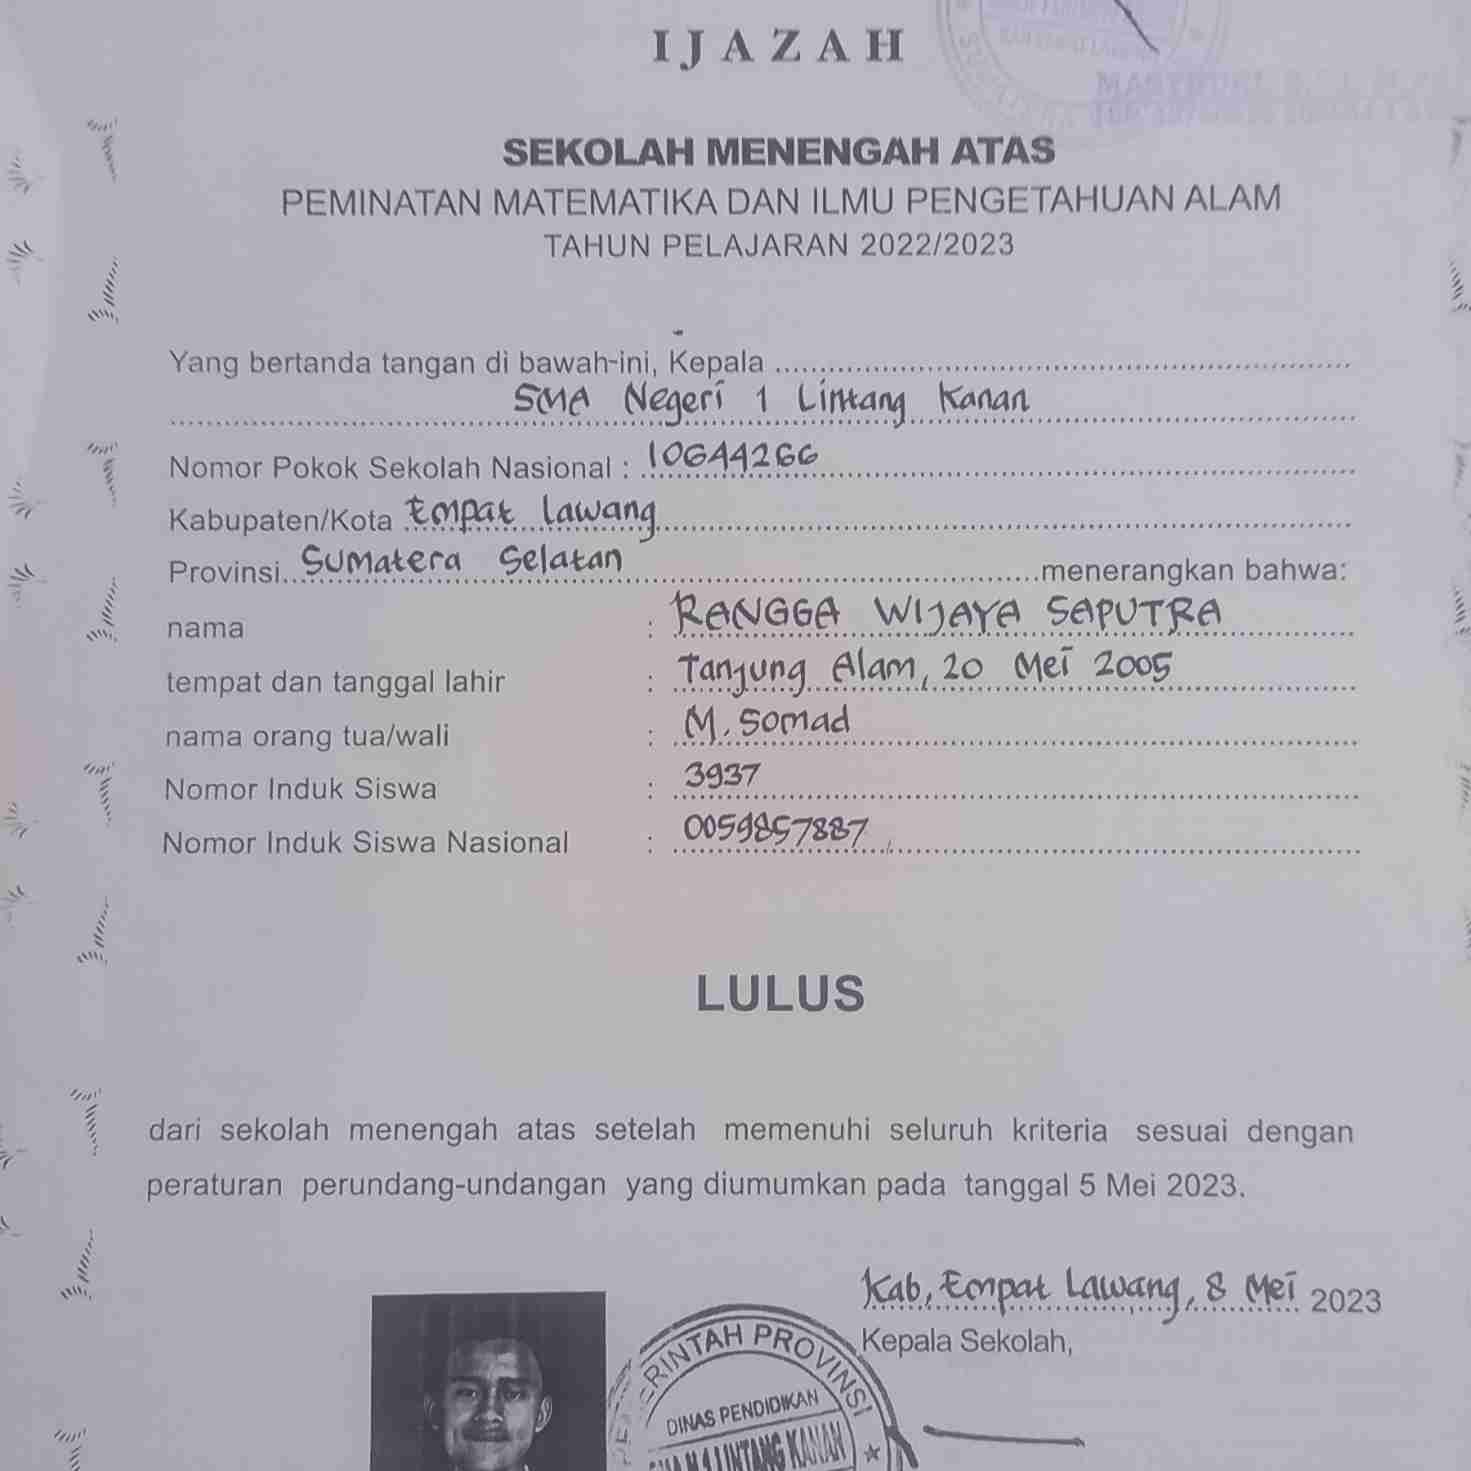 IJAZAH
SEKOLAH MENENGAH ATAS
PEMINATAN MATEMATIKA DAN ILMU PENGETAHUAN ALAM
TAHUN PELAJARAN 2022/2023
Yang bertanda tangan di bawah-ini, Kepala
SMA Negeri 1 Lintang Kanan
Nomor Pokok Sekolah Nasional : 10644266
Kabupaten/Kota Empat Lawang
Provinsi Sumatera Selatan menerangkan bahwa:
nama : RANGGA WIJAYA SAPUTRA
tempat dan tanggal lahir : Tanjung Alam, 20 Mei 2005
nama orang tua/wali : M. Somad
Nomor Induk Siswa : 3937
Nomor Induk Siswa Nasional : 0059857887
LULUS
dari sekolah menengah atas setelah memenuhi seluruh kriteria sesuai dengan
peraturan perundang-undangan yang diumumkan pada tanggal 5 Mei 2023.
Kab, Empat Lawang, 8 Mei 2023
Kepala Sekolah,
PROVINSI
DINAS PENDIDIKAN
LINTANG KANAN